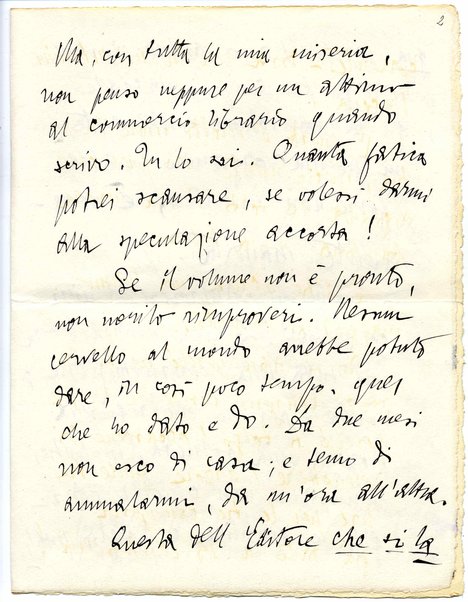 2
Ma, con tutta la mia miseria,
non penso neppure per un attimo
al commercio librario quando
scrivo. Tu lo sai. Quanta fatica
potrei scansare, se volessi darmi
alla speculazione accorta!
Se il volume non è pronto,
non merito rimproveri. Nessun
cervello al mondo avrebbe potuto
dare, in così poco tempo, quel
che ho dato e do. Da due mesi
non esco di casa; e temo di
ammalarmi, da un'ora all'altra.
Questa dell'Editore che si la